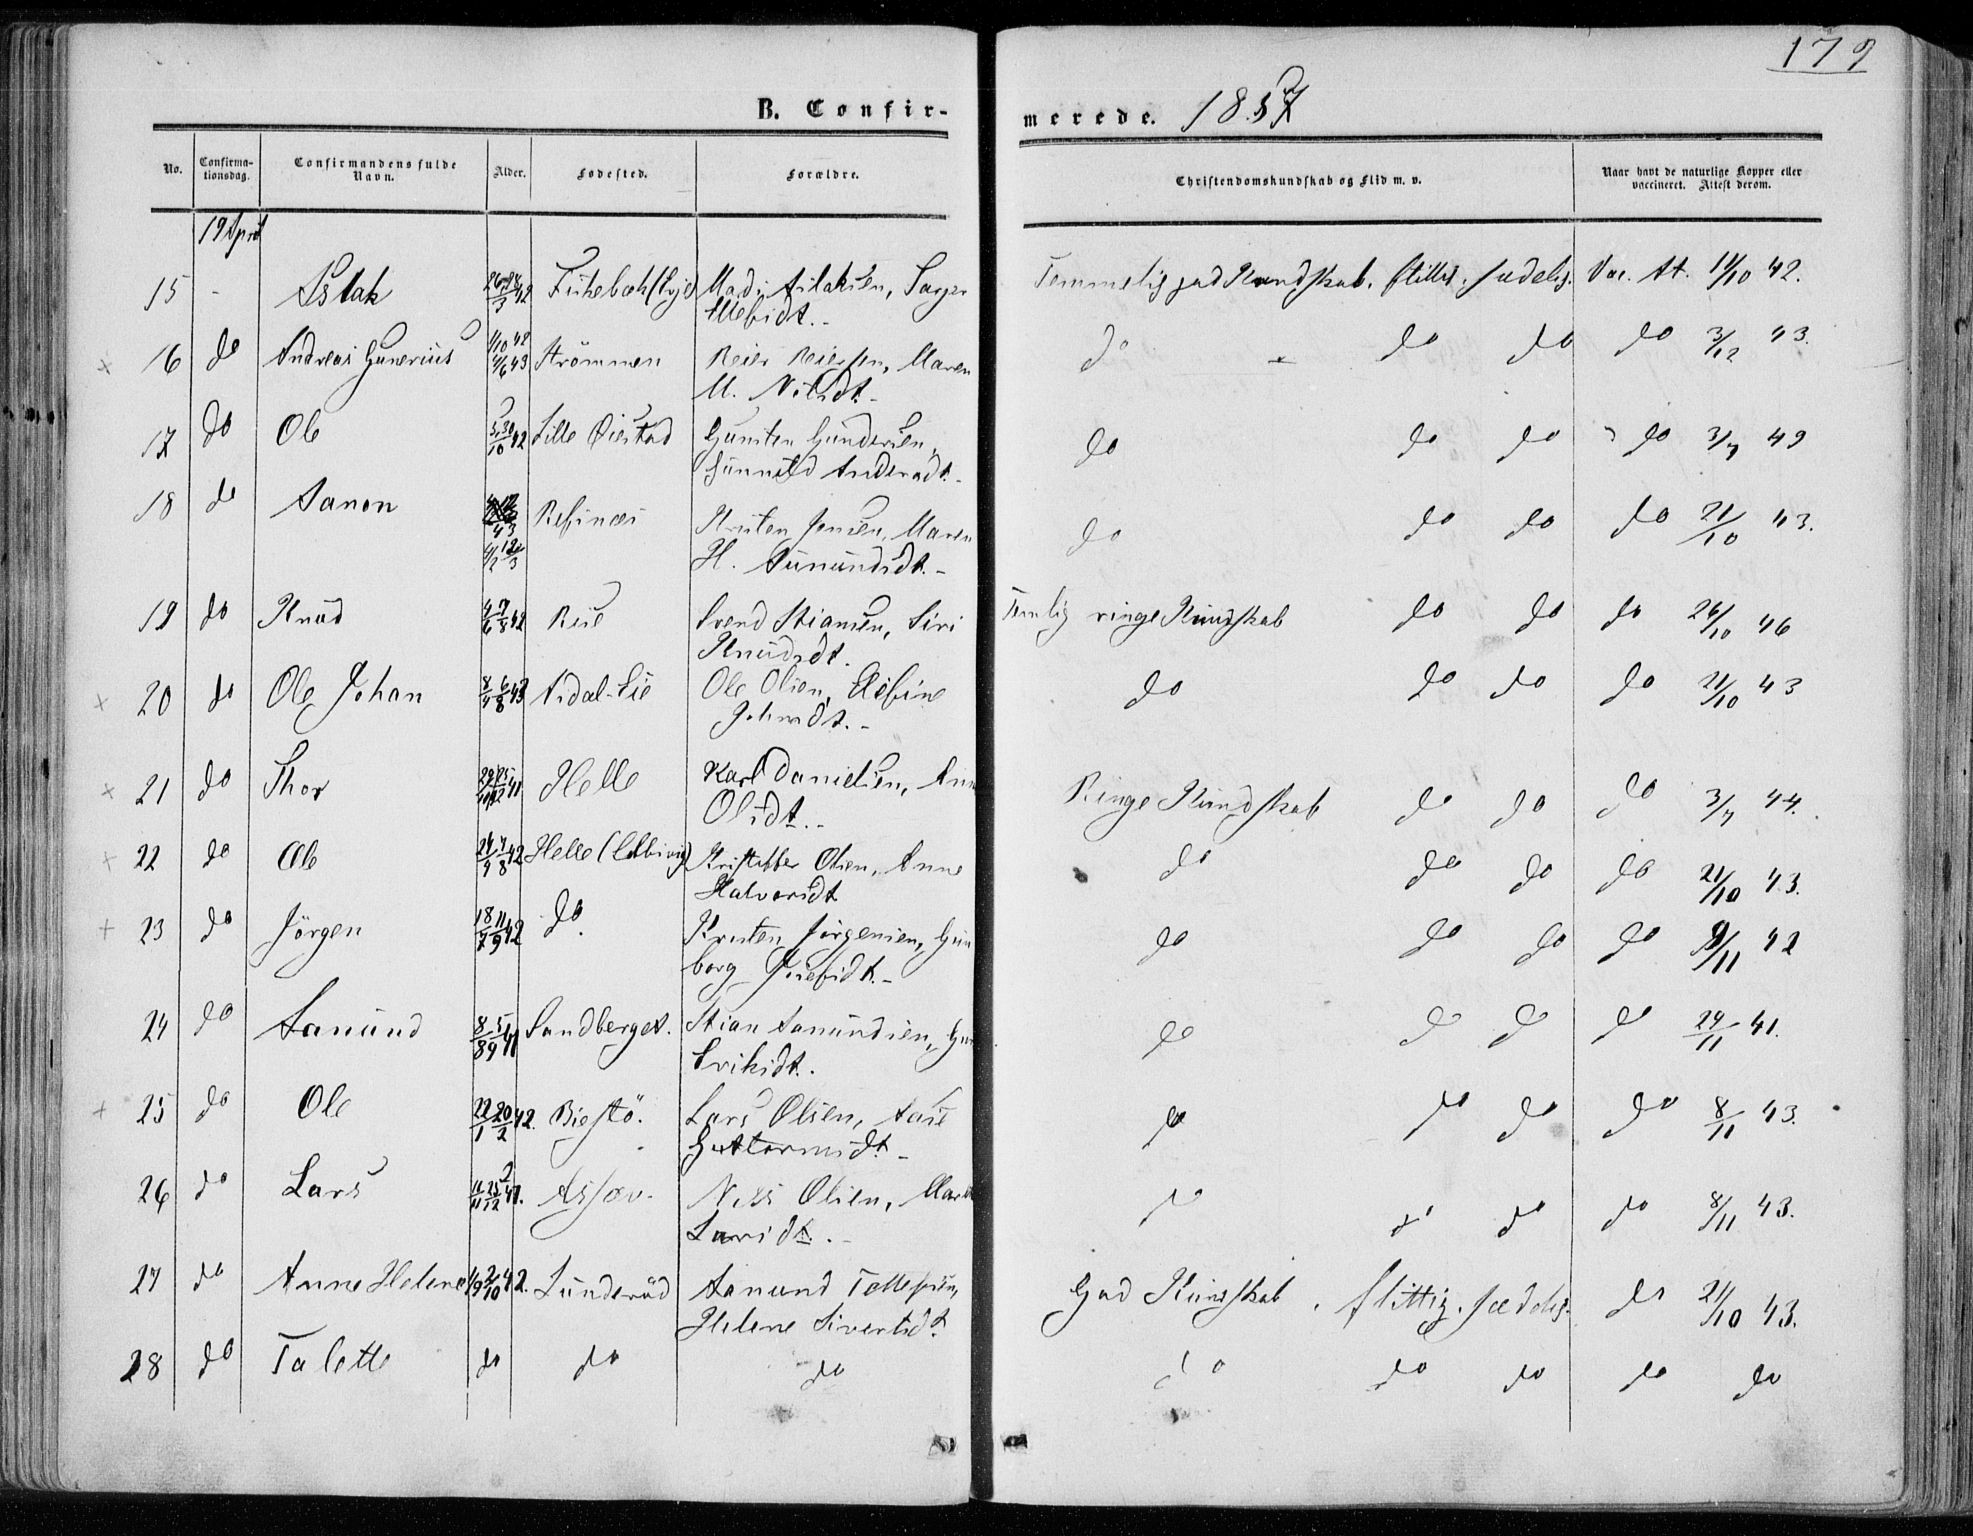 179
B. Confir-
merede. 1857
No.
Confirma-
tionsdag.
Confirmandens fulde
Navn.
Alder.
Fødested.
Forældre.
Christendomskundskab og Flid m. v.
Naar havt de naturlige Kopper eller
vaccineret. Attest derom.
19 April
15 - Aslak Mads Aslaksen,
Temmelig god Kundskab. flittig. sædelig. Vac. At. 42.
16 do Andreas Gunerius Strömmen Reier Reiersen, Maren
M. Nilsdt.-
do do do do 3/12 43.
17 do Ole Lille Øiestad Gunsten Gundersen,
Gunnild Andersdt.-
do do do do 3/7 49
18 do Aanon Refsnæs Kristen Jensen, Maren
H. Aanundsdt.-
do do do do 21/10 43.
19 do Knud 42 Rise Svend Stiansen, Siri
Knudsdt.
Temlig ringe Kundskab do do do 26/10 46
20 do Ole Johan 8/4 6/8 43 Ole Olsen,
Johnsdt.-
do do do do 21/10 43
21 do Thor 41 Helle Karl Danielsen, Ann
Olsdt.-
Ringe Kundskab do do do 3/7 44.
22 do Ole 42 Helle Kristoffer Olsen, Anne
Halvorsdt
do do do do 21/10 43.
23 do Jörgen 18/7 11/9 42 do Kristen Jörgensen, Gun
borg Josefsdt.-
do do do do 9/11 42
24 do Aanund 8/8 5/9 41 Sandberget. Stian Aanundsen,
Eriksdt.
do do do do 24/11 41.
25 do Ole 22/1 20/2 42. Biestö. Lars Olsen, Aase
Guttormsdt.-
do do do do 8/11 43.
26 do Lars 41. Assæv. Nils Olsen,
Larsdt.-
do do do do 8/11 43.
27 do Anne Helene 42. Lunderöd Aanund Tellefsen,
Helene Sivertsdt
God Kunskab. flittig. sædelig. do 21/10 43.
28 do Talette do do do
do do do do do